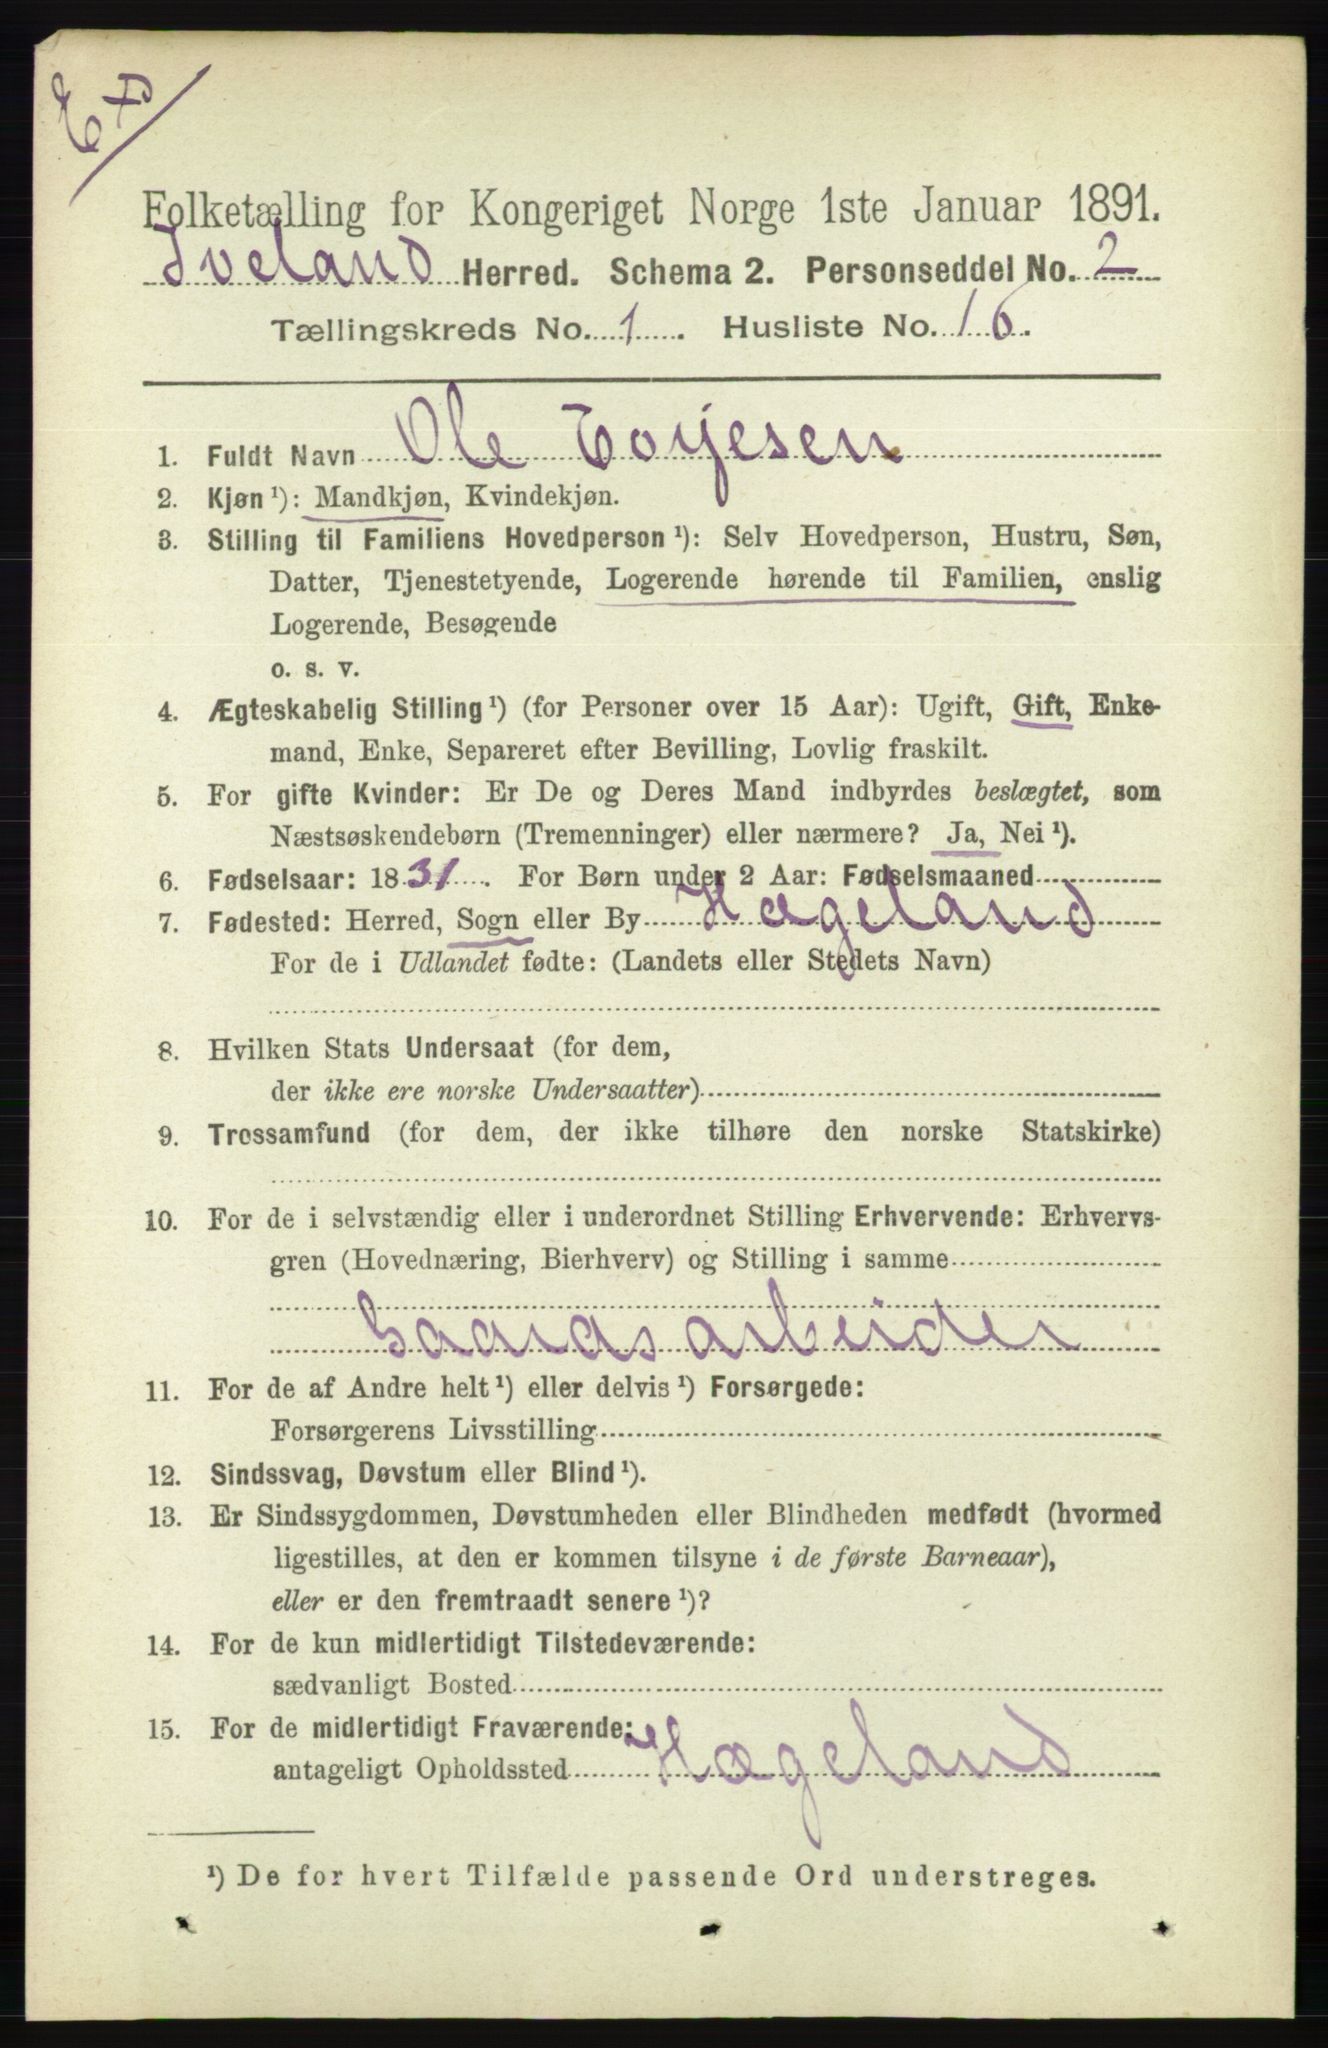 Folketælling for Kongeriget Norge 1ste Januar 1891.
Iveland Herred. Schema 2. Personseddel No. 2
Tællingskreds No. 1. Husliste No. 16.
1. Fuldt Navn Ole Torjesen
2. Kjøn ¹): Mandkjøn, Kvindekjøn.
3. Stilling til Familiens Hovedperson ¹): Selv Hovedperson, Hustru, Søn,
Datter, Tjenestetyende, Logerende hørende til Familien, enslig
Logerende, Besøgende
o. s. v.
4. Ægteskabelig Stilling ¹) (for Personer over 15 Aar): Ugift, Gift, Enke-
mand, Enke, Separeret efter Bevilling, Lovlig fraskilt.
5. For gifte Kvinder: Er De og Deres Mand indbyrdes beslægtet, som
Næstsøskendebørn (Tremenninger) eller nærmere? Ja, Nei ¹).
6. Fødselsaar: 1831. For Børn under 2 Aar: Fødselsmaaned
7. Fødested: Herred, Sogn eller By Hægeland
For de i Udlandet fødte: (Landets eller Stedets Navn)
8. Hvilken Stats Undersaat (for dem,
der ikke ere norske Undersaatter)
9. Trossamfund (for dem, der ikke tilhøre den norske Statskirke)
10. For de i selvstændig eller i underordnet Stilling Erhvervende: Erhvervs-
gren (Hovednæring, Bierhverv) og Stilling i samme
Gaardsarbeider
11. For de af Andre helt ¹) eller delvis ¹) Forsørgede:
Forsørgerens Livsstilling
12. Sindssvag, Døvstum eller Blind ¹).
13. Er Sindssygdommen, Døvstumheden eller Blindheden medfødt (hvormed
ligestilles, at den er kommen tilsyne i de første Barneaar),
eller er den fremtraadt senere ¹)?
14. For de kun midlertidigt Tilstedeværende:
sædvanligt Bosted
15. For de midlertidigt Fraværende:
antageligt Opholdssted Hægeland
¹) De for hvert Tilfælde passende Ord understreges.